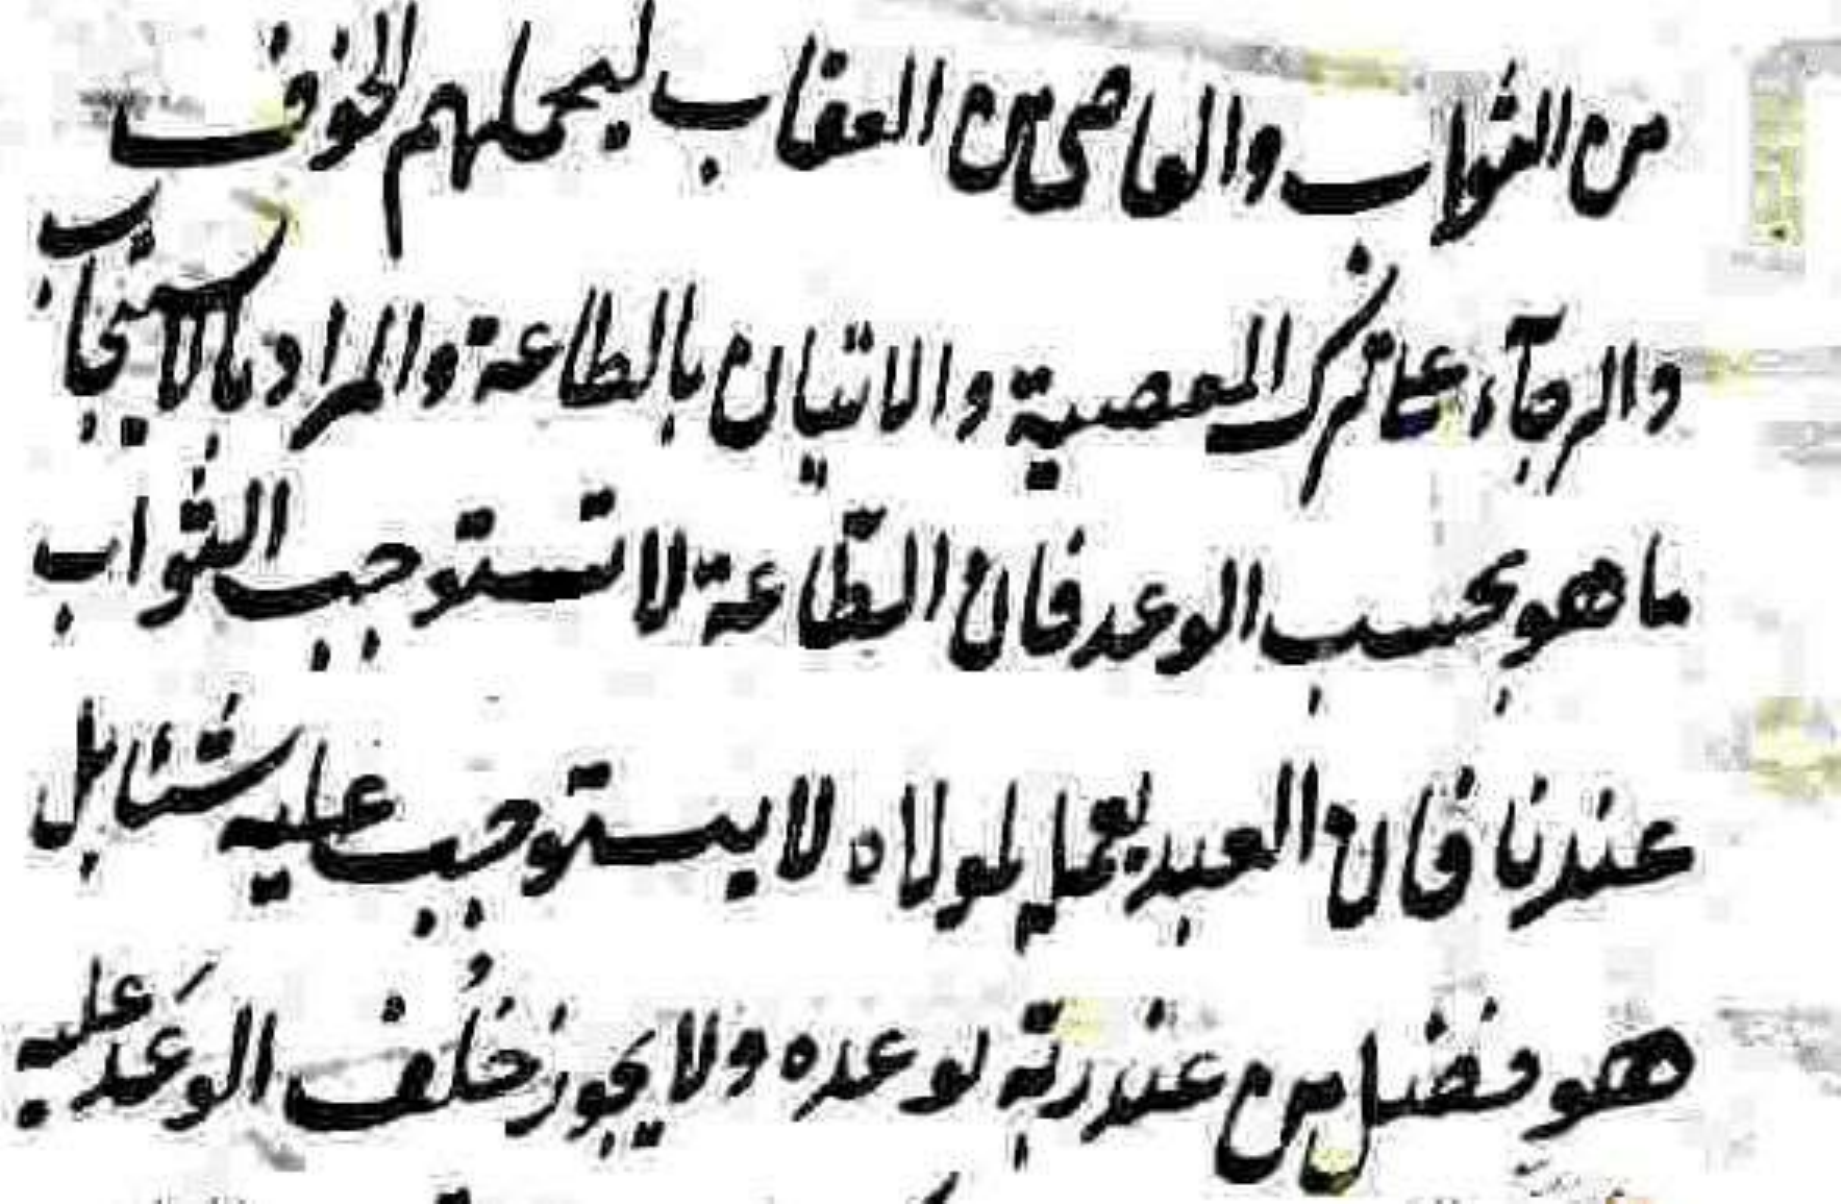 من الثواب والعاصى من العقاب ليحملهم الخوف
والرجآء على ترك المعصية والاتيان بالطاعة والمراد بالاستيجاب
ما هو بحسب الوعد فان الطّاعة لا تستوجب الثواب
عندنا فان العبد يعمل لمولاه لا يستوجب عليه شئا بل
هو فضل من عند ربّه لوعده ولا يجوز خُلف الوَعد عليه